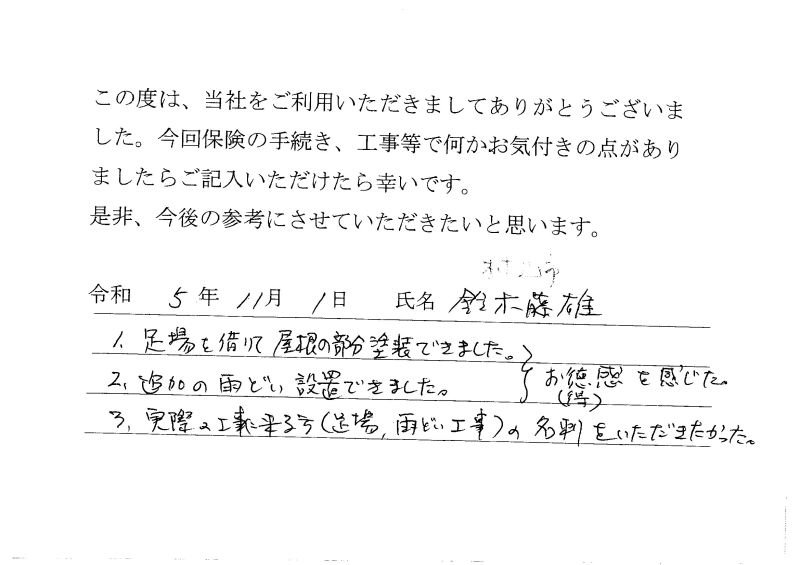 この度は、当社をご利用いただきましてありがとうございま
した。今回保険の手続き、工事等で何かお気付きの点があり
ましたらご記入いただけたら幸いです。
是非、今後の参考にさせていただきたいと思います。
令和 5年 11月 1日 氏名 鈴木藤雄
1、足場を借りて屋根の部分塗装できました。
2、追加の雨どい設置できました。
お徳感を感じた。
(得)
3、実際の工事に来る方(足場,雨どい工事)の名刺をいただきたかった。